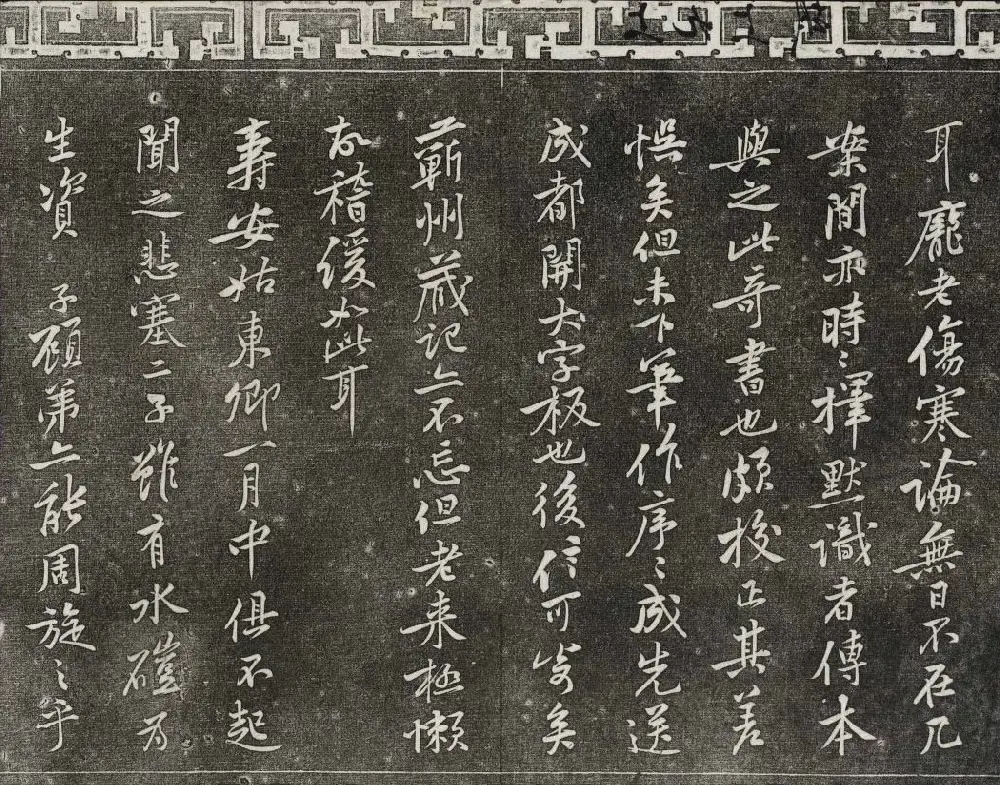 耳龐老傷寒論無日不在几
案間亦時〻擇默識者傳本
與之此奇書也頗校正其差
悮矣但未下筆作序〻成先送
成都開大字板也後信可寄矣
蘄州藏記亦不忘但老来極懶
故稽緩如此耳
壽安姑東卿一月中俱不起
聞之悲塞二子雖有水磑為
生資 子顧弟亦能周旋之乎